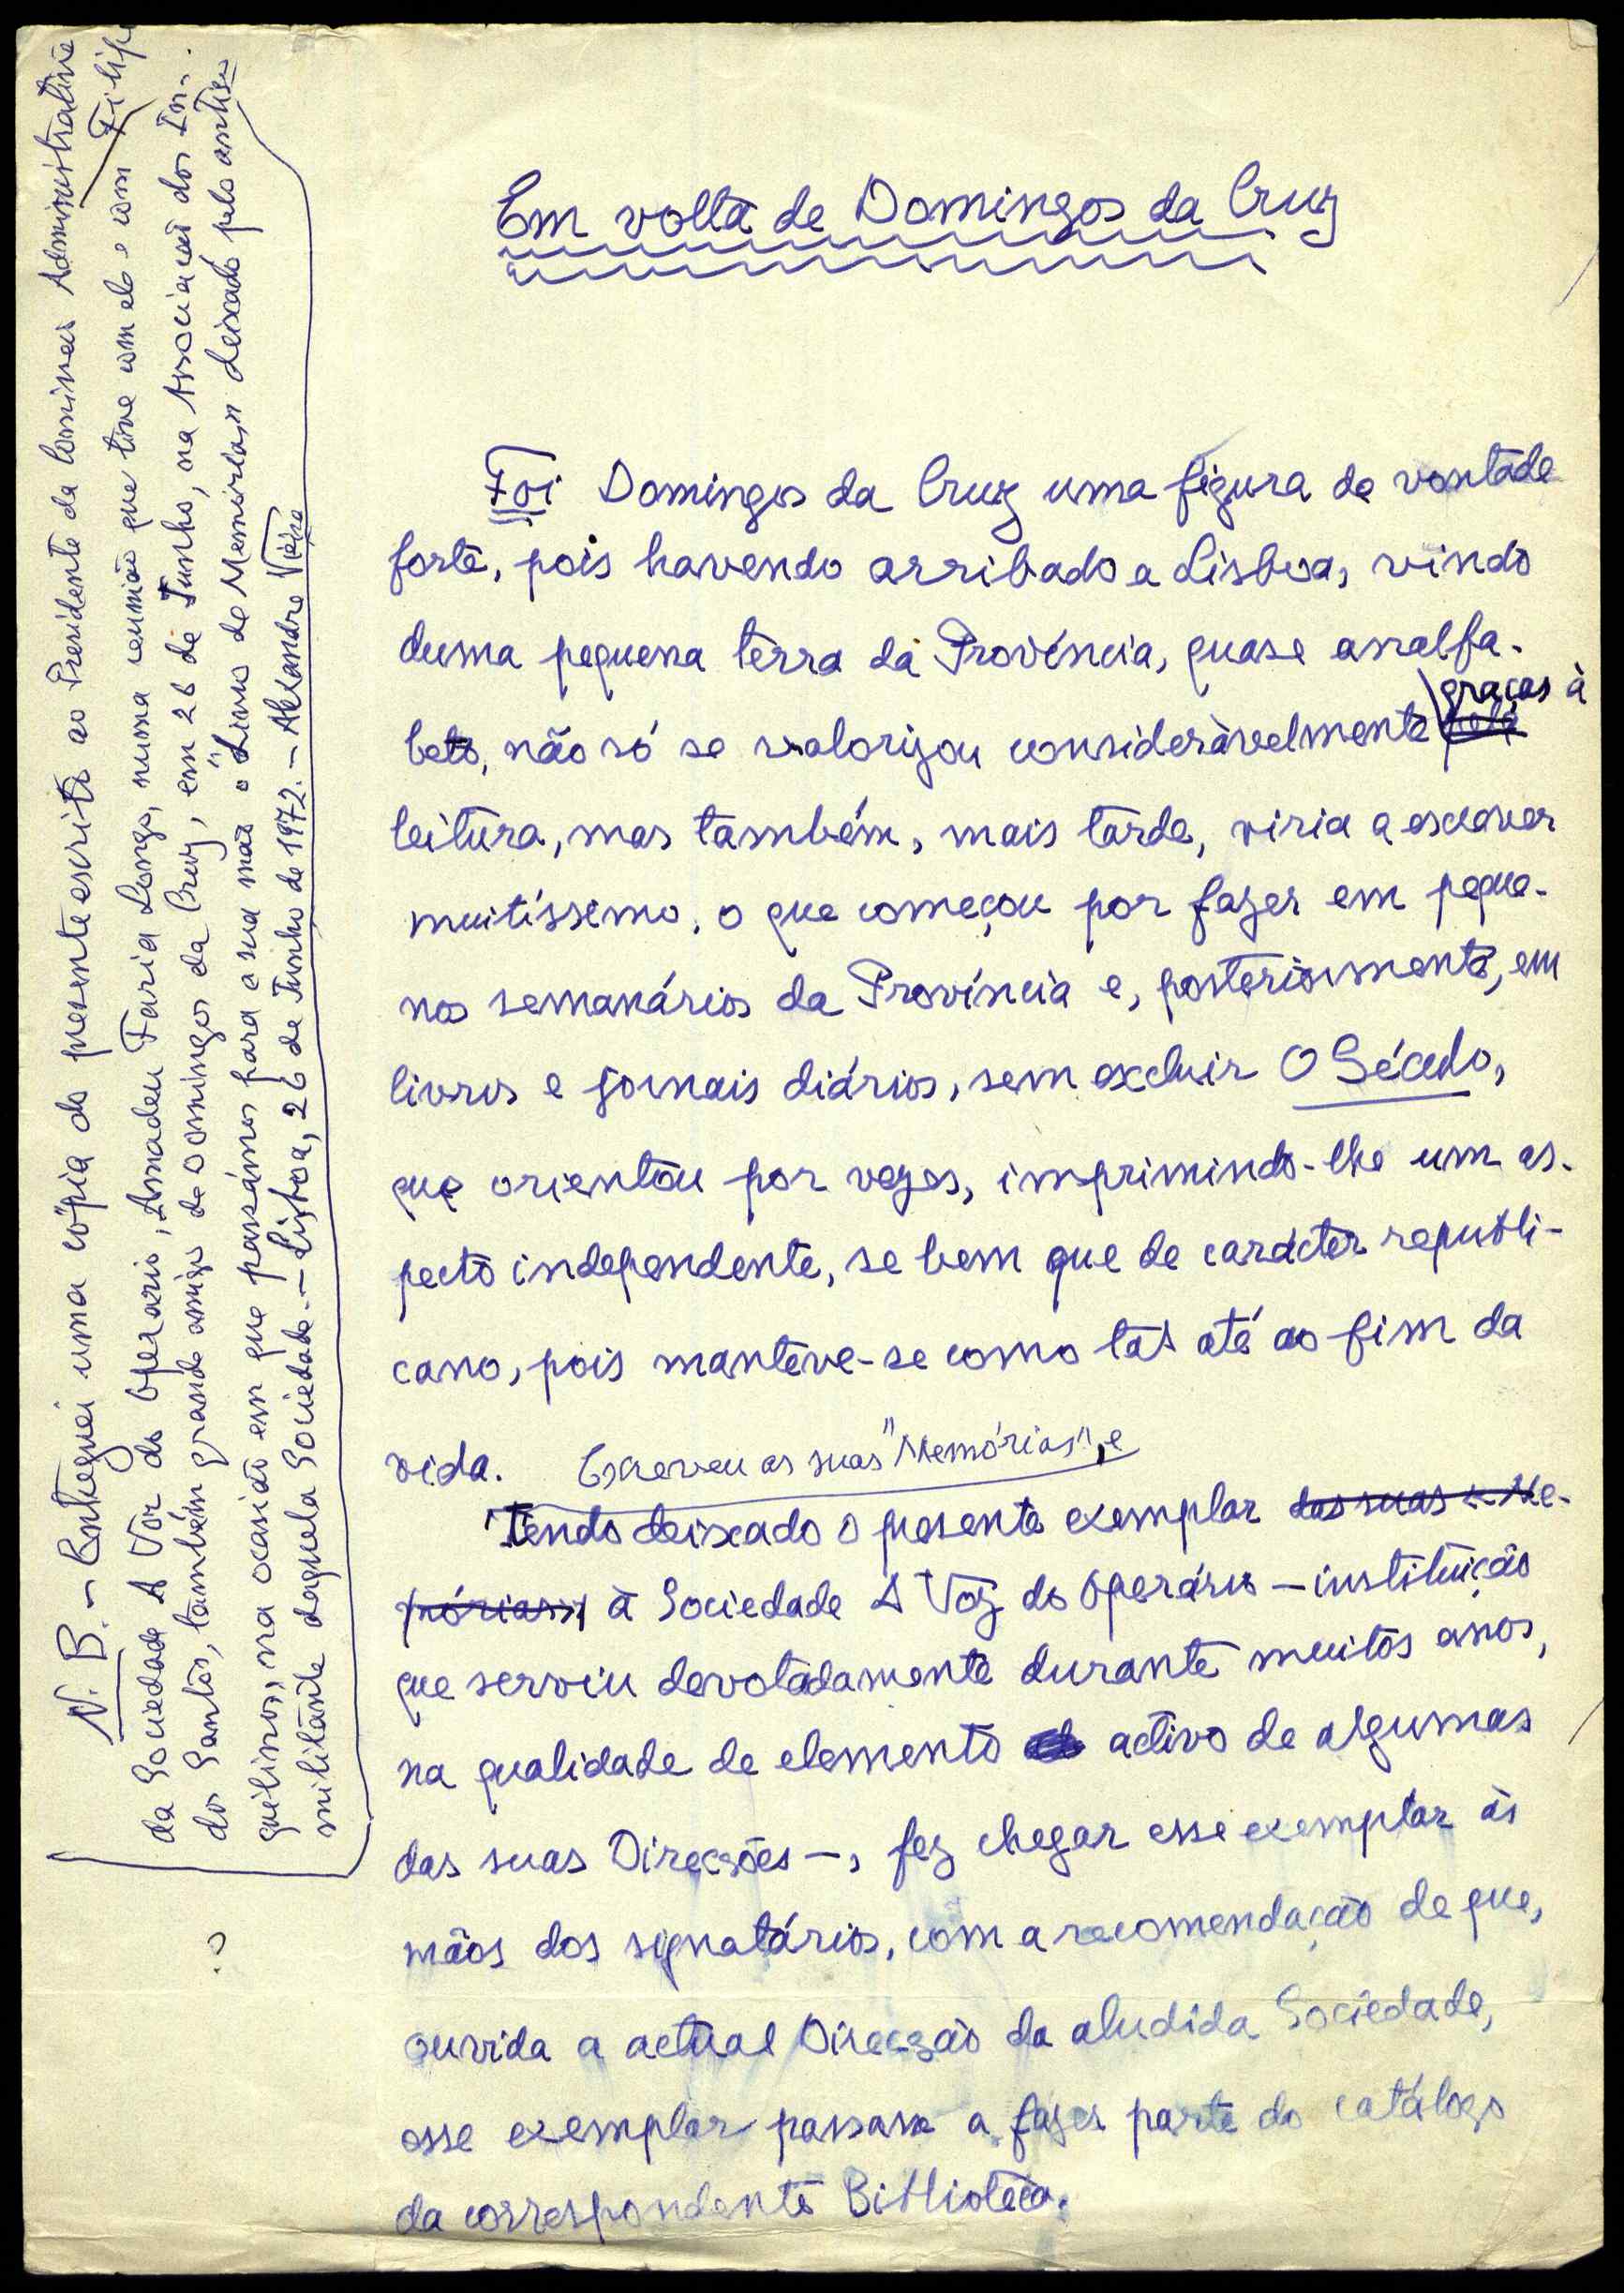 Em volta de Domingos da Cruz
Foi Domingos da Cruz uma figura de vontade
forte, pois havendo arribado a Lisboa, vindo
duma pequena terra da Província, quase analfa-
beto, não só se valorizou consideràvelmente graças à
leitura, mas também, mais tarde, viria a escrever
muitíssimo, o que começou por fazer em peque-
nos semanários da Província e, posteriormente, em
livros e jornais diários, sem excluir O Século,
que orientou por vezes, imprimindo-lhe um as-
pecto independente, se bem que de carácter republi-
cano, pois manteve-se como tal até ao fim da
vida. Escreveu as suas "Memórias", e
Tendo deixado o presente exemplar das suas «Me-
mórias» à Sociedade A Voz do Operário — instituição
que serviu devotadamente durante muitos anos,
na qualidade de elemento activo de algumas
das suas Direcções —, fez chegar esse exemplar às
mãos dos signatários, com a recomendação de que,
ouvida a actual Direcção da aludida Sociedade,
esse exemplar passasse a fazer parte do catálogo
da correspondente Biblioteca.
N. B. — Entreguei uma cópia do presente escrito ao Presidente da Comissão Administrativa
da Sociedade A Voz do Operário, Amadeu Faria Longo, numa reunião que tive com ele e com Filipe
dos Santos, também grande amigo de Domingos da Cruz, em 26 de Junho, na Associação dos In-
quilinos, na ocasião em que passámos para a sua mão o "Livro de Memórias" deixado pelo antigo
militante daquela Sociedade. — Lisboa, 26 de Junho de 1972. — Alexandre Vieira